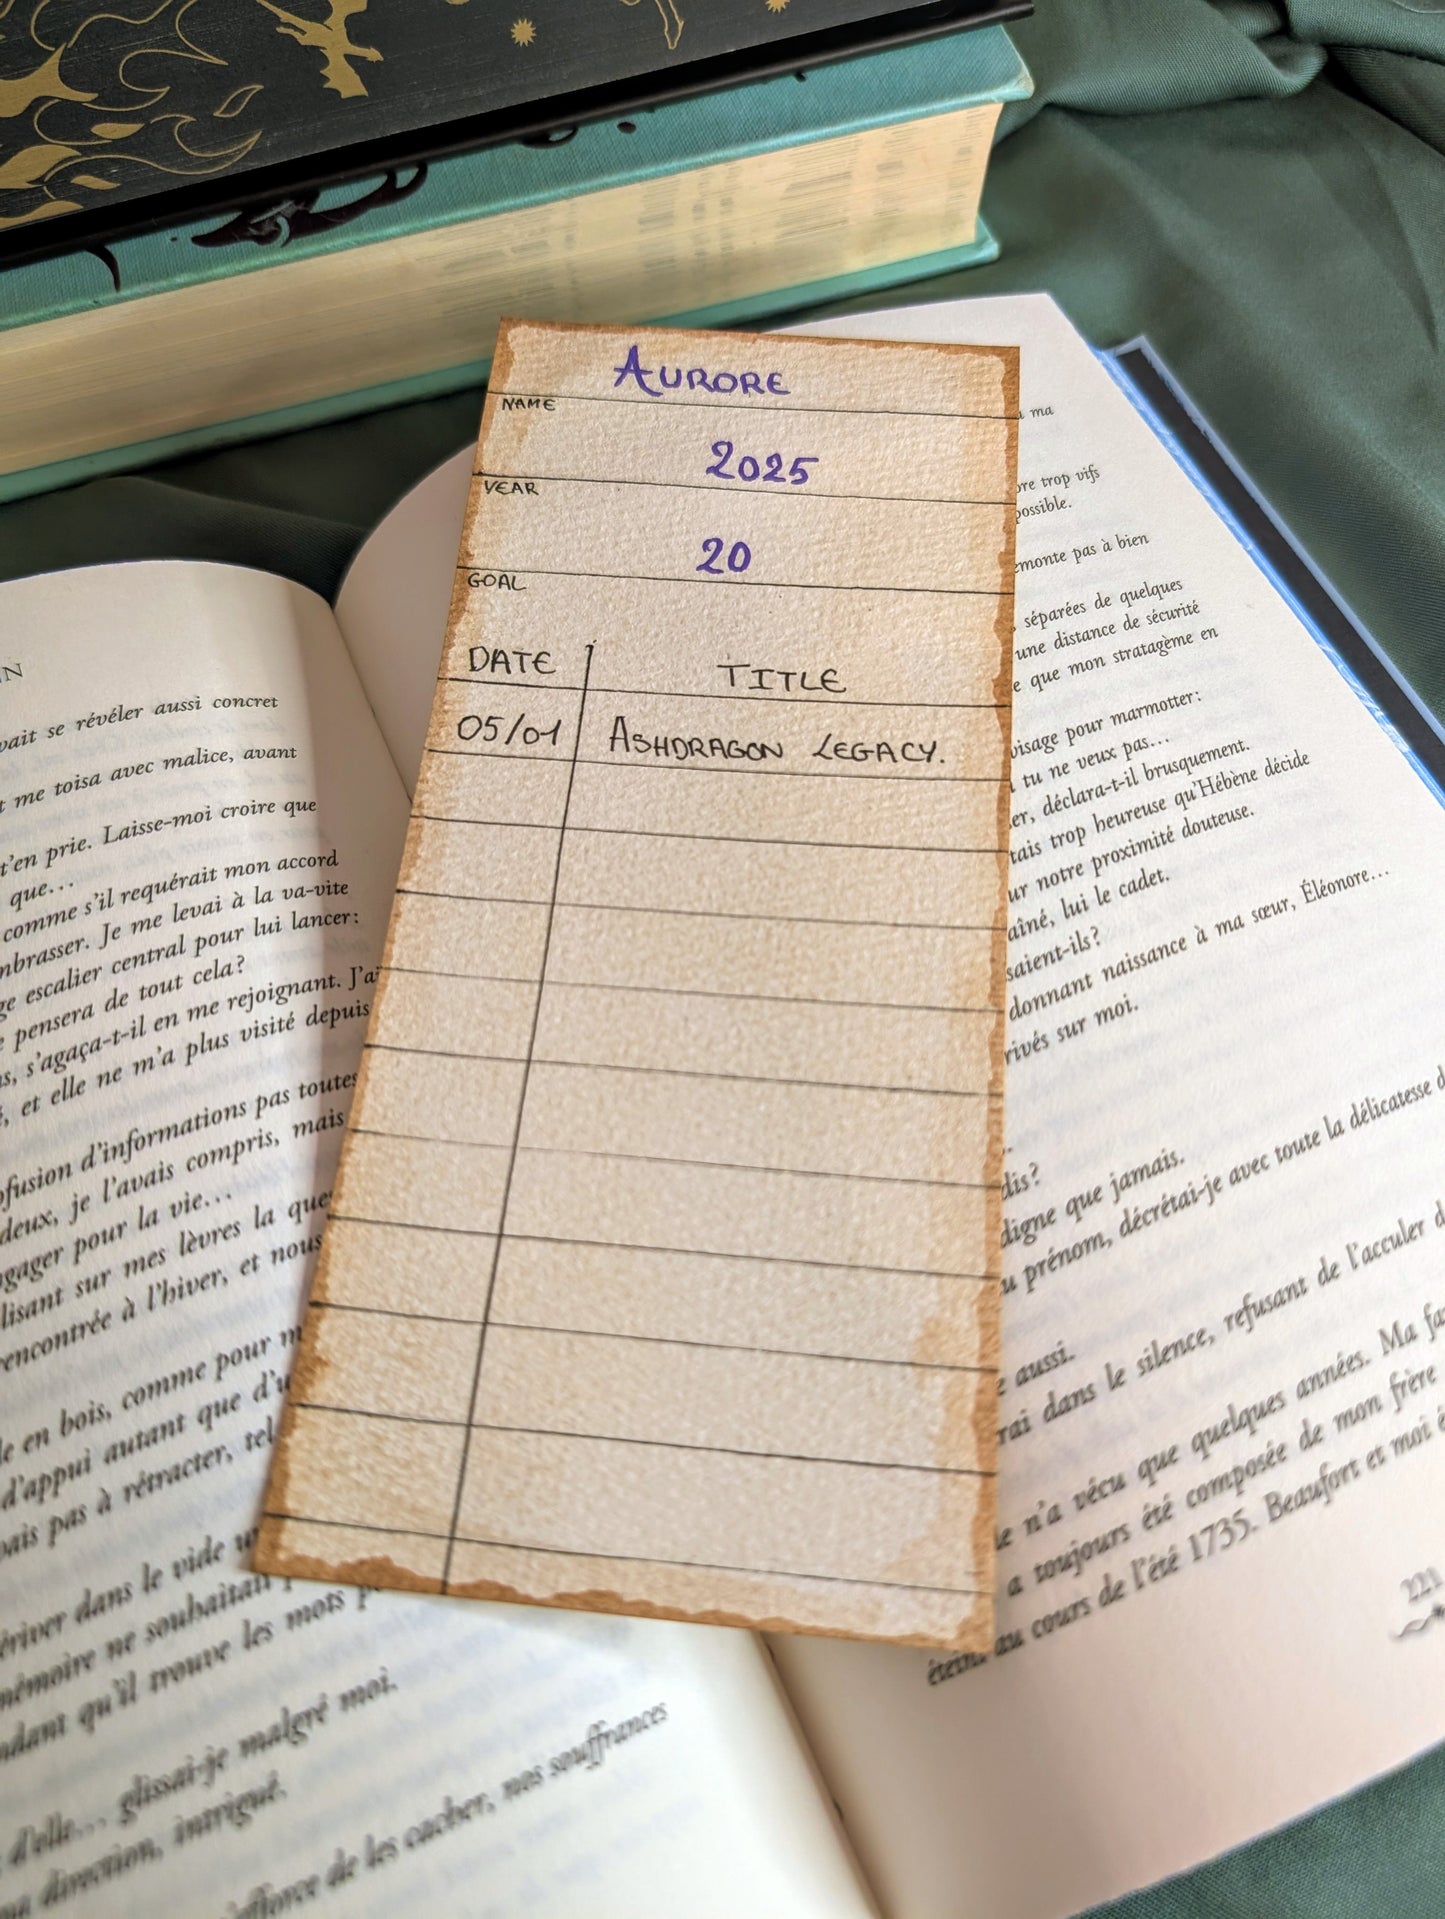 AURORE
NAME
2025
YEAR
20
GOAL
DATE TITLE
05/01 ASHDRAGON LEGACY.
se révéler aussi concret
me toisa avec malice, avant
t'en prie. Laisse-moi croire que
que…
comme s'il requérait mon accord
Je me levai à la va-vite
escalier central pour lui lancer:
pensera de tout cela?
s'agaça-t-il en me rejoignant.
et elle ne m'a plus visité depuis
d'informations pas toutes
deux, je l'avais compris, mais
pour la vie…
sur mes lèvres la
à l'hiver, et nous
en bois, comme pour
d'appui autant que
pas à rétracter,
dans le vide
mémoire ne souhaitait
qu'il trouve les mots
d'elle… glissai-je malgré moi.
direction, intrigué.
de les cacher, nos souffrances
ma
trop vifs
possible.
pas à bien
séparées de quelques
une distance de sécurité
que mon stratagème en
visage pour marmotter:
tu ne veux pas…
déclara-t-il brusquement.
trop heureuse qu'Hébène décide
notre proximité douteuse.
aîné, lui le cadet.
donnant naissance à ma sœur, Éléonore…
rivés sur moi.
digne que jamais.
prénom, décrétai-je avec toute la délicatesse
aussi.
dans le silence, refusant de l'acculer
n'a vécu que quelques années. Ma
a toujours été composée de mon frère
au cours de l'été 1735. Beaufort et moi
221